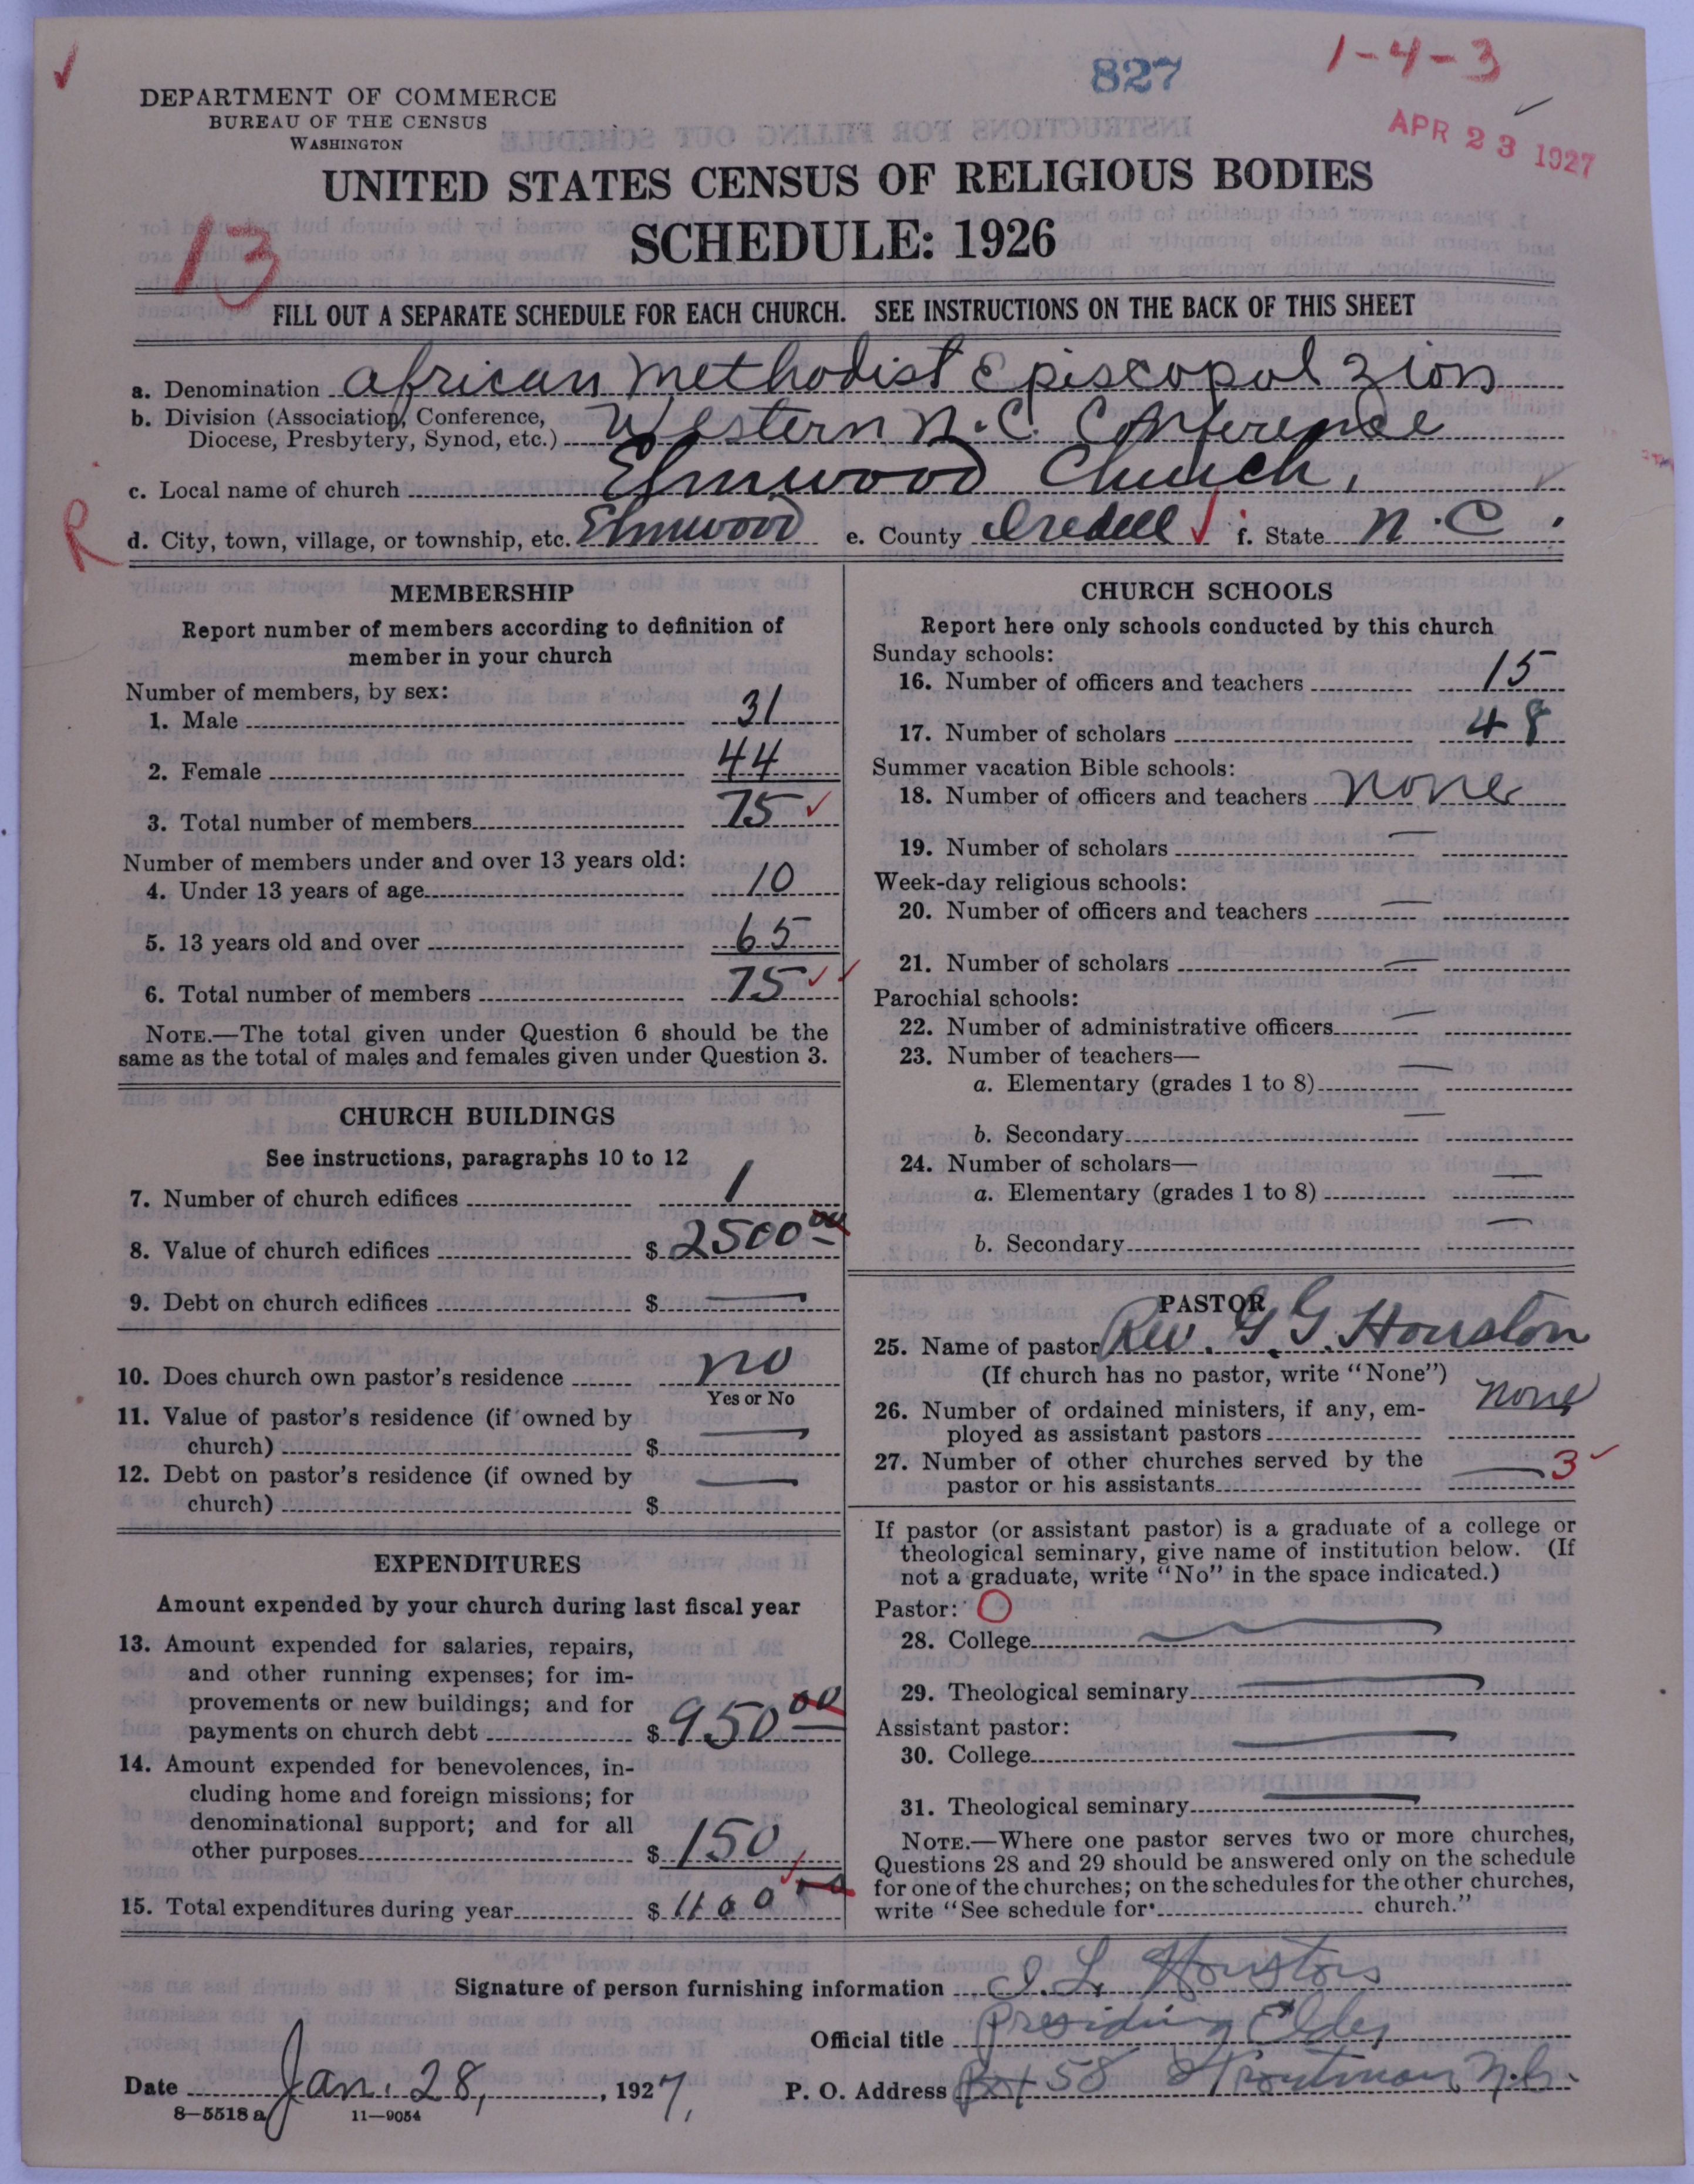 827
1-4-3
DEPARTMENT OF COMMERCE
BUREAU OF THE CENSUS
WASHINGTON
APR 23 1927
UNITED STATES CENSUS OF RELIGIOUS BODIES
SCHEDULE: 1926
13
FILL OUT A SEPARATE SCHEDULE FOR EACH CHURCH. SEE INSTRUCTIONS ON THE BACK OF THIS SHEET
a. Denomination African Methodist Episcopal Zion
b. Division (Association, Conference,
Diocese, Presbytery, Synod, etc.) Western N.C. Conference
c. Local name of church Elmwood Church,
R
d. City, town, village, or township, etc. Elmwood e. County Iredell f. State N.C.
MEMBERSHIP
Report number of members according to definition of
member in your church
Number of members, by sex:
1. Male 31
2. Female 44
3. Total number of members 75
Number of members under and over 13 years old:
4. Under 13 years of age 10
5. 13 years old and over 65
6. Total number of members 75
NOTE.—The total given under Question 6 should be the
same as the total of males and females given under Question 3.
CHURCH BUILDINGS
See instructions, paragraphs 10 to 12
7. Number of church edifices 1
8. Value of church edifices $ 2500 00
9. Debt on church edifices $ —
10. Does church own pastor's residence no
Yes or No
11. Value of pastor's residence (if owned by
church) $ —
12. Debt on pastor's residence (if owned by
church) $ —
EXPENDITURES
Amount expended by your church during last fiscal year
13. Amount expended for salaries, repairs,
and other running expenses; for im-
provements or new buildings; and for
payments on church debt $ 950 00
14. Amount expended for benevolences, in-
cluding home and foreign missions; for
denominational support; and for all
other purposes $ 150
15. Total expenditures during year $ 1100
CHURCH SCHOOLS
Report here only schools conducted by this church
Sunday schools:
16. Number of officers and teachers 15
17. Number of scholars 48
Summer vacation Bible schools:
18. Number of officers and teachers none
19. Number of scholars —
Week-day religious schools:
20. Number of officers and teachers —
21. Number of scholars —
Parochial schools:
22. Number of administrative officers —
23. Number of teachers—
a. Elementary (grades 1 to 8) —
b. Secondary —
24. Number of scholars—
a. Elementary (grades 1 to 8) —
b. Secondary —
PASTOR
25. Name of pastor Rev. G. G. Houston
(If church has no pastor, write "None")
26. Number of ordained ministers, if any, em-
ployed as assistant pastors none
27. Number of other churches served by the
pastor or his assistants — 3
If pastor (or assistant pastor) is a graduate of a college or
theological seminary, give name of institution below. (If
not a graduate, write "No" in the space indicated.)
Pastor: O
28. College —
29. Theological seminary —
Assistant pastor:
30. College —
31. Theological seminary —
NOTE.—Where one pastor serves two or more churches,
Questions 28 and 29 should be answered only on the schedule
for one of the churches; on the schedules for the other churches,
write "See schedule for church."
Signature of person furnishing information I. L. Houston
Official title Presiding Elder
Date Jan. 28, 1927, P. O. Address Box 58 Troutman, N.C.
8—5518 a 11—9054